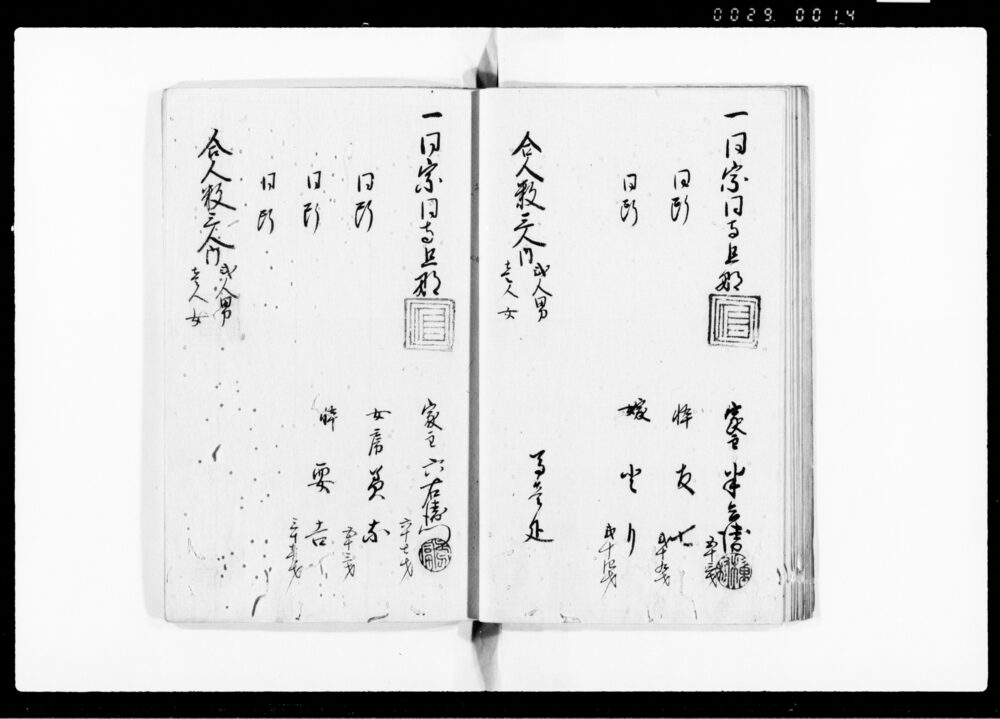 0029. 0014
一同宗同寺旦那
家主 半兵衛
五十三才
同断
忰 友七
弐十九才
同断
嫁
弐十四才
合人数三人内
弐人男
壱人女
馬壱疋
一同宗同寺旦那
家主 六右衛門
六十七才
同断
女房
五十三才
同断
忰 要吉
三十才
同断
合人数三人内
弐人男
壱人女